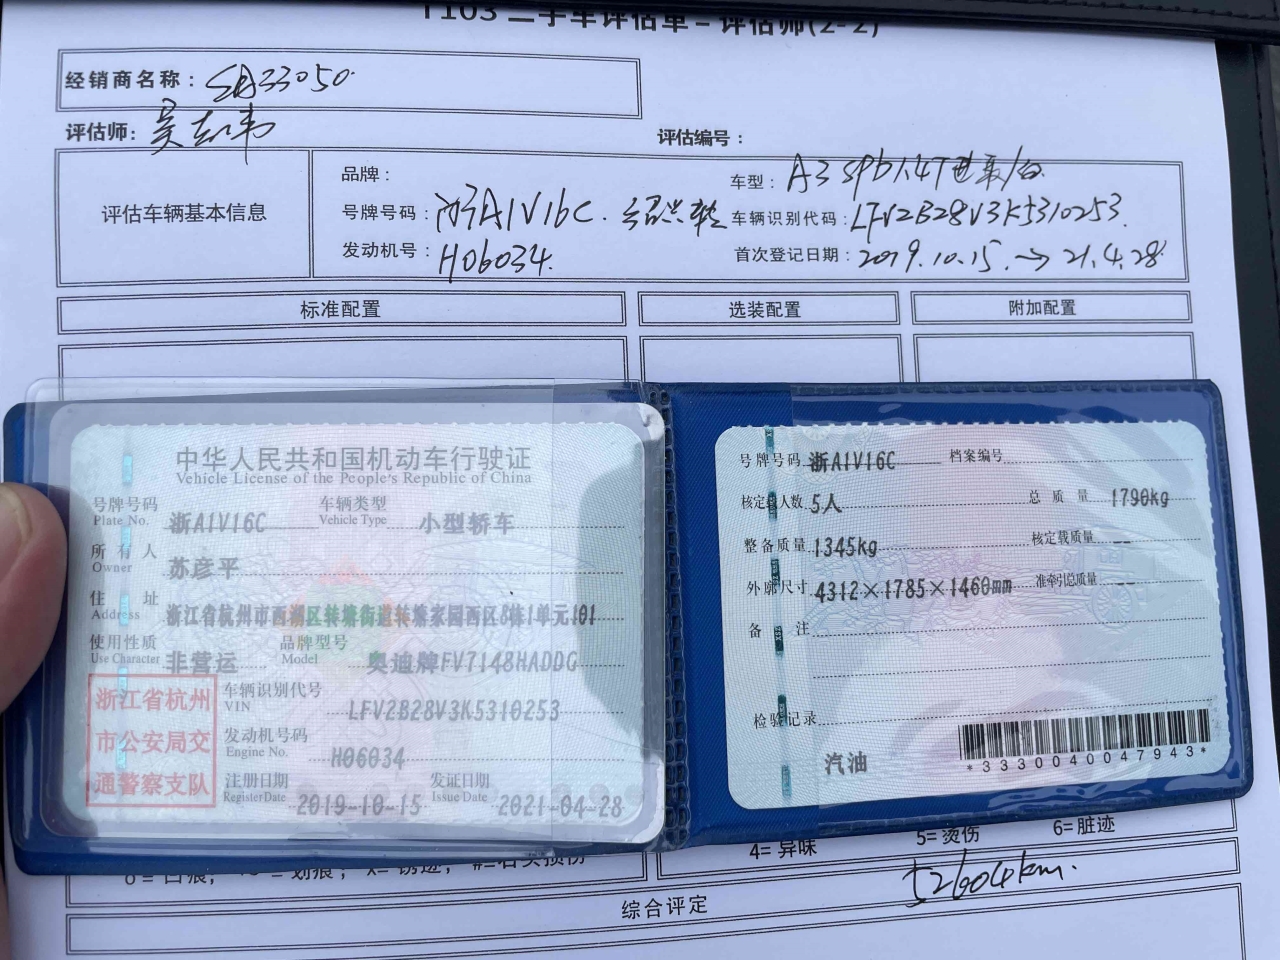 T103 二手车评估单－评估师(2-2)
经销商名称： SA33050
评估师：
评估编号：
评估车辆基本信息
品牌： 车型： A3 SPB 1.4T 进取/白
号牌号码： 浙A1V16C. 绍兴转 车辆识别代码： LFV2B28V3K5310253.
发动机号： H06034. 首次登记日期： 2019.10.15. → 21.4.28
标准配置 选装配置 附加配置
中华人民共和国机动车行驶证
Vehicle License of the People's Republic of China
号牌号码 浙A1V16C 车辆类型 小型轿车
Plate No. Vehicle Type
所有人 苏彦平
Owner
住址 浙江省杭州市西湖区转塘街道转塘家园西区8幢1单元101
Address
使用性质 非营运 品牌型号 奥迪牌FV7148HADDG
Use Character Model
浙江省杭州市公安局交通警察支队
车辆识别代号 LFV2B28V3K5310253
VIN
发动机号码 H06034
Engine No.
注册日期 2019-10-15 发证日期 2021-04-28
Register Date Issue Date
号牌号码 浙A1V16C 档案编号
核定载人数 5人 总质量 1790kg
整备质量 1345kg 核定载质量 --
外廓尺寸 4312×1785×1460mm 准牵引总质量 --
备注
检验记录
汽油
*3330040047943*
4= 异味 5= 烫伤 6= 脏迹
52604km.
综合评定